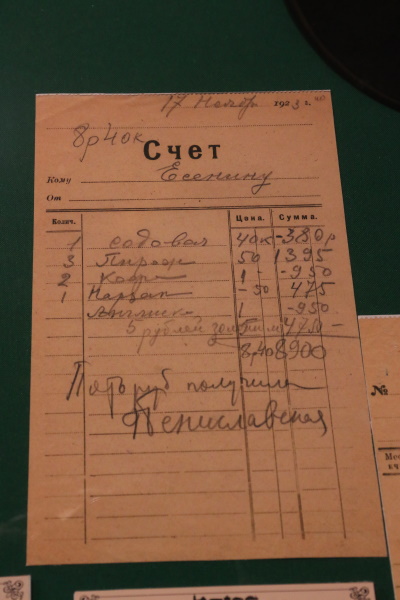 17 Ноября 1923 г.
8р40к
Счет
Кому Есенину
От
Колич. Цена. Сумма.
1 содовая 40к - 380р
3 Пирож 50 1395
2 Кофе 1 - - 950
1 Нарзан - 50 475
Английск 1 - 950
5 рублей золотом 5 4750 -
8,40 8900
Пять руб получила
Бениславская
№